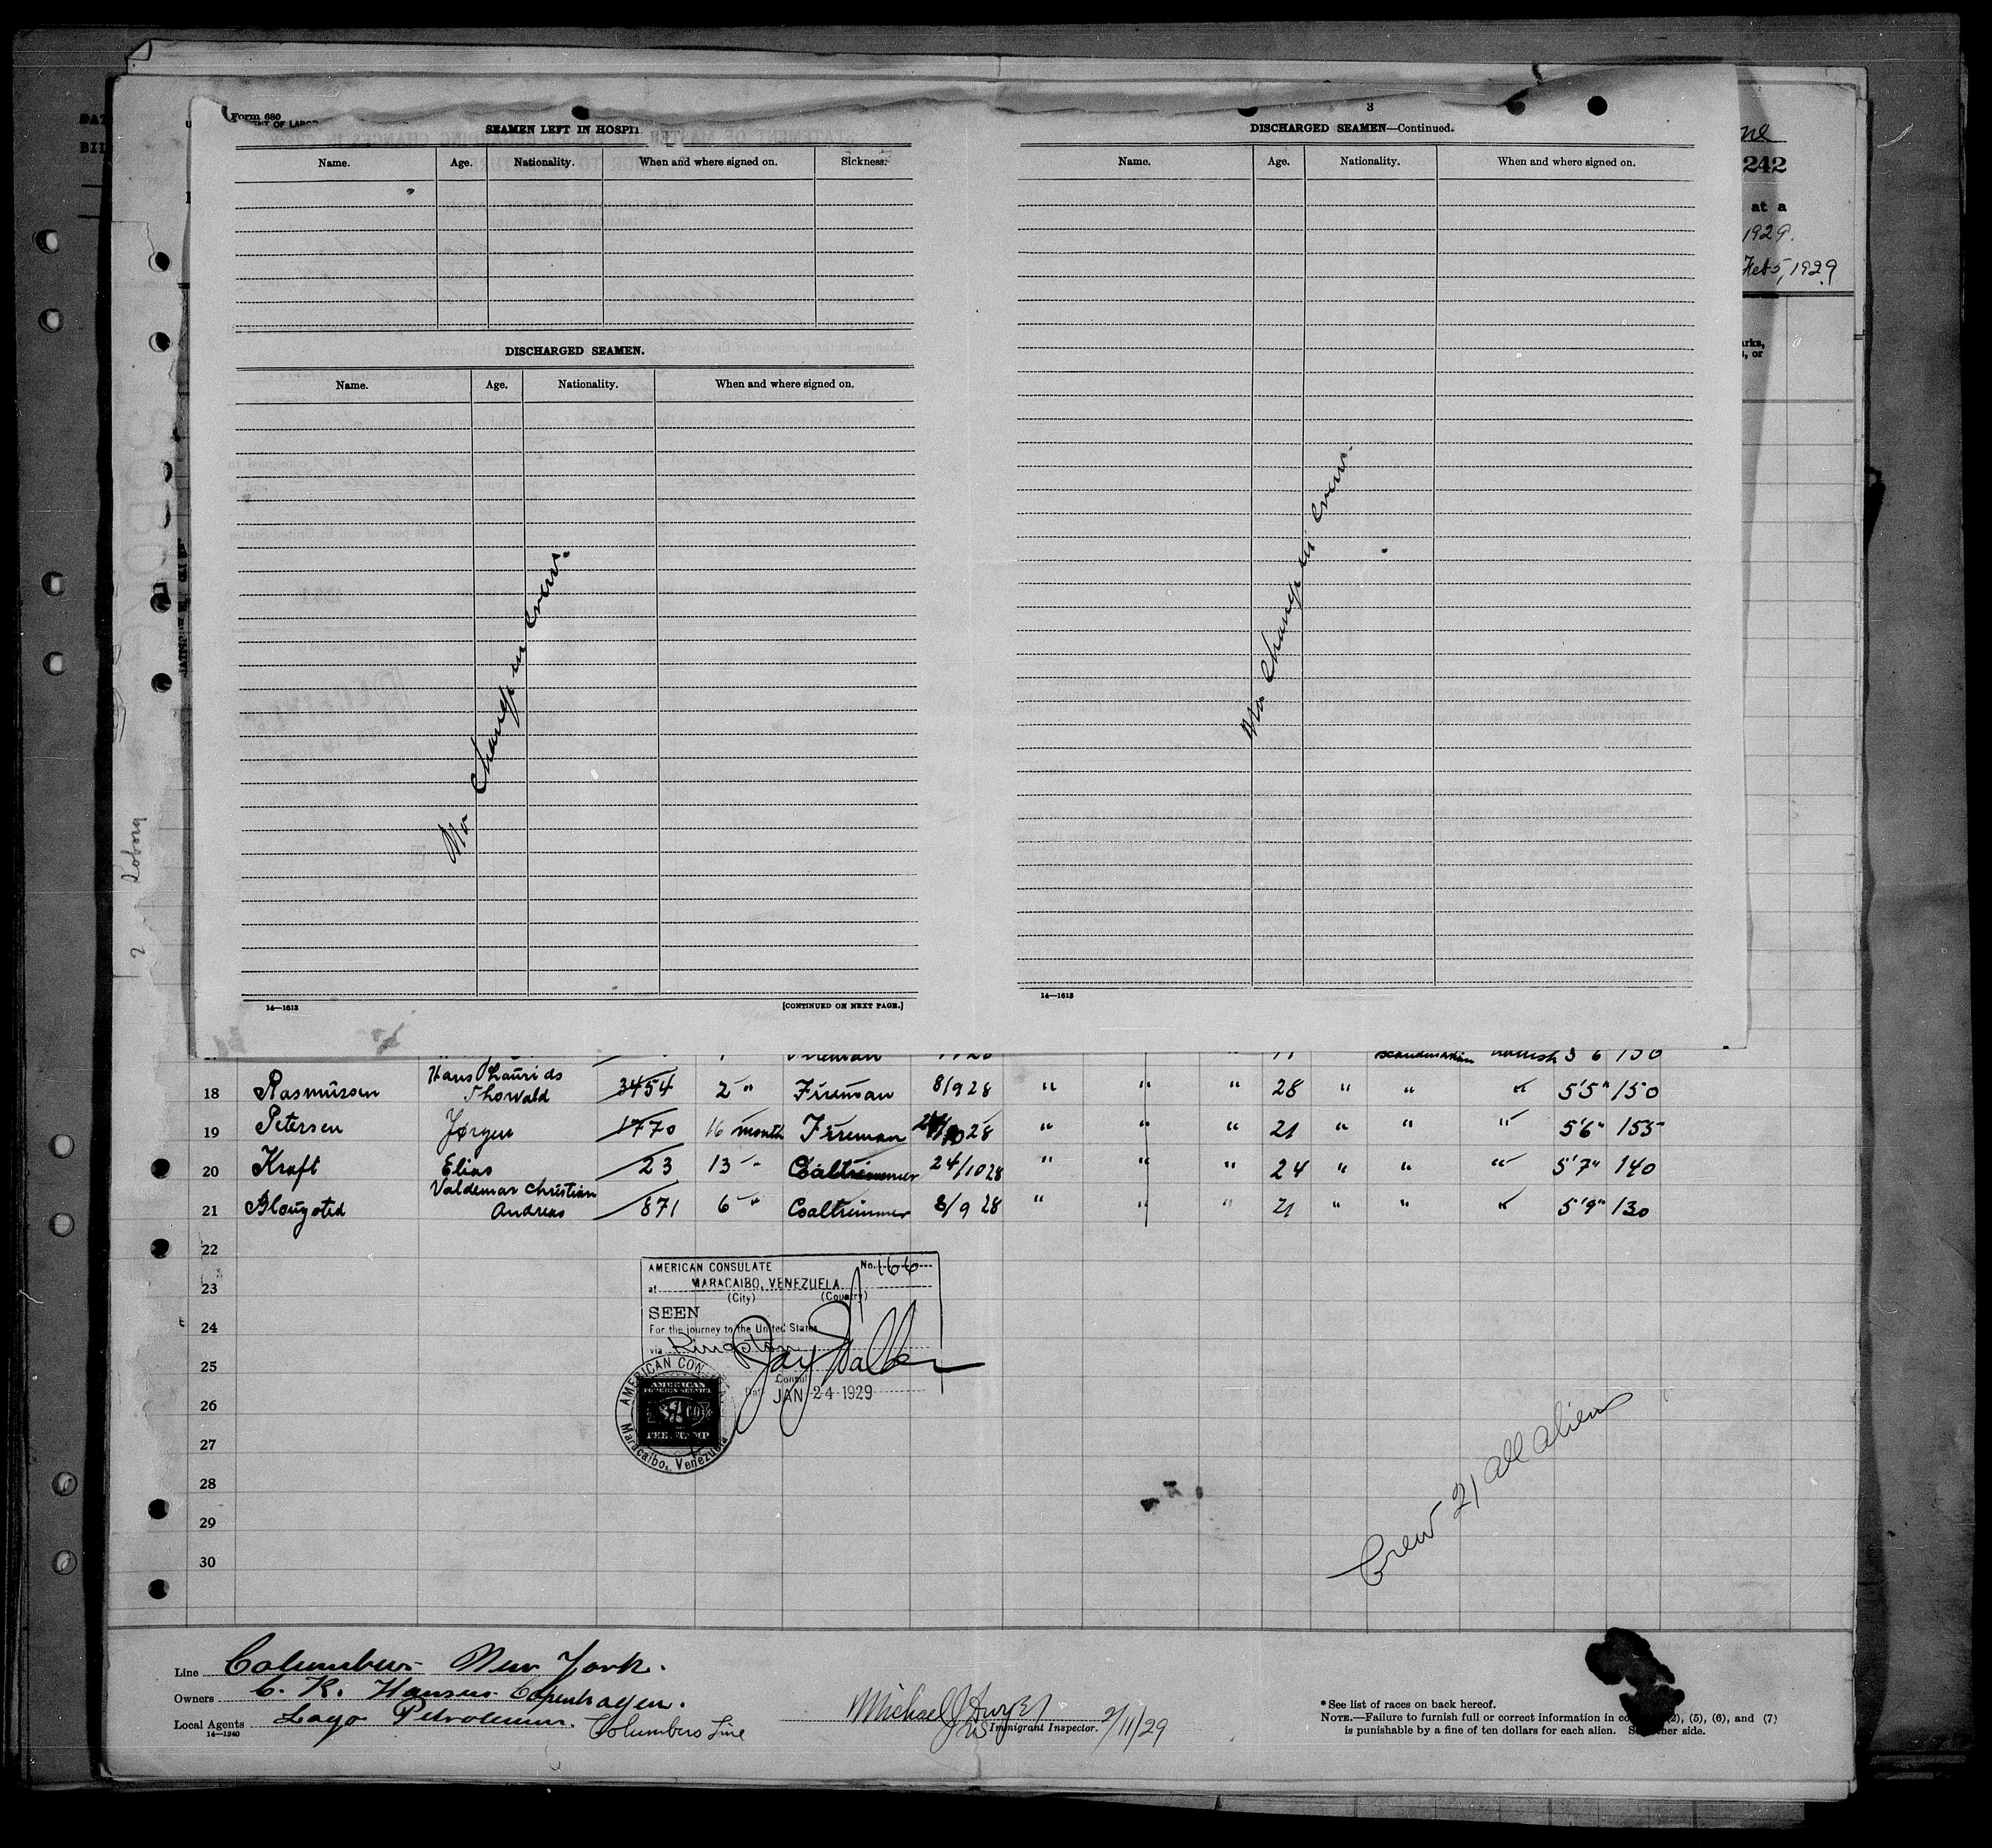 Form 680
SEAMEN LEFT IN HOSPIT
Name. Age. Nationality. When and where signed on. Sickness.
DISCHARGED SEAMEN.
Name. Age. Nationality. When and where signed on.
No Change in crew.
14—1613 [CONTINUED ON NEXT PAGE.]
3
DISCHARGED SEAMEN—Continued.
Name. Age. Nationality. When and where signed on.
No Change in crew.
14—1613
242
at a
1929.
Feb 5, 1929
2 Roborg
Fireman Scandinavian Danish 5 6 150
18 Rasmussen Hans Laurids Thorvald 3454 2 " Fireman 8/9 28 " " " 28 " " " 5'5" 150
19 Petersen Jørgen 1770 16 month Fireman 28 " " " 21 " " " 5'6" 155
20 Kraft Elias 23 13 " Coaltrimmer 24/10 28 " " " 24 " " " 5'7" 140
21 Blougsted Valdemar Christian Andreas 871 6 " Coaltrimmer 8/9 28 " " " 21 " " " 5'9" 130
22
23
24
25
26
27
28
29
30
AMERICAN CONSULATE No. 166
at MARACAIBO, VENEZUELA
(City) (Country)
SEEN
For the journey to the United States
via Kingston
Consul
Date JAN 24 1929
AMERICAN CONSULATE
AMERICAN
FOREIGN SERVICE
FEE STAMP
Maracaibo, Venezuela
Crew 21 all aliens
Line Columbus New York.
Owners C. K. Hansen Copenhagen.
Local Agents Lago Petroleum. Columbus Line
14—1240
Michael J
US Immigrant Inspector. 2/11/29
* See list of races on back hereof.
NOTE.—Failure to furnish full or correct information in co (2), (5), (6), and (7)
is punishable by a fine of ten dollars for each alien. See other side.